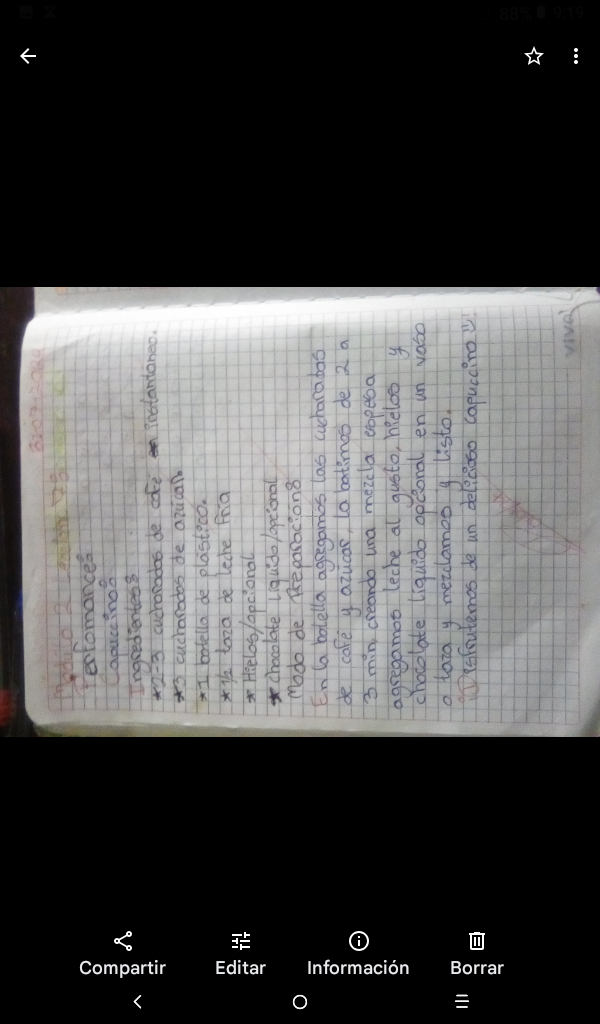 88% 9:19
Módulo 2
Perfomance:
Capuccino:
Ingredientes:
*2-3 cucharadas de café instantaneo.
*3 cucharadas de azucar.
*1 botella de plástico.
*1/2 taza de leche fria
*Hielos/opcional
*chocolate liquido/opcional
Modo de Preparacion:
En la botella agregamos las cucharadas
de café y azúcar, la batimos de 2 a
3 min, creando una mezcla espesa
agregamos leche al gusto, hielos y
chocolate liquido opcional en un vaso
o taza y mezclamos y listo.
Disfrutemos de un delicioso capuccino
VIVA
Compartir
Editar
Información
Borrar